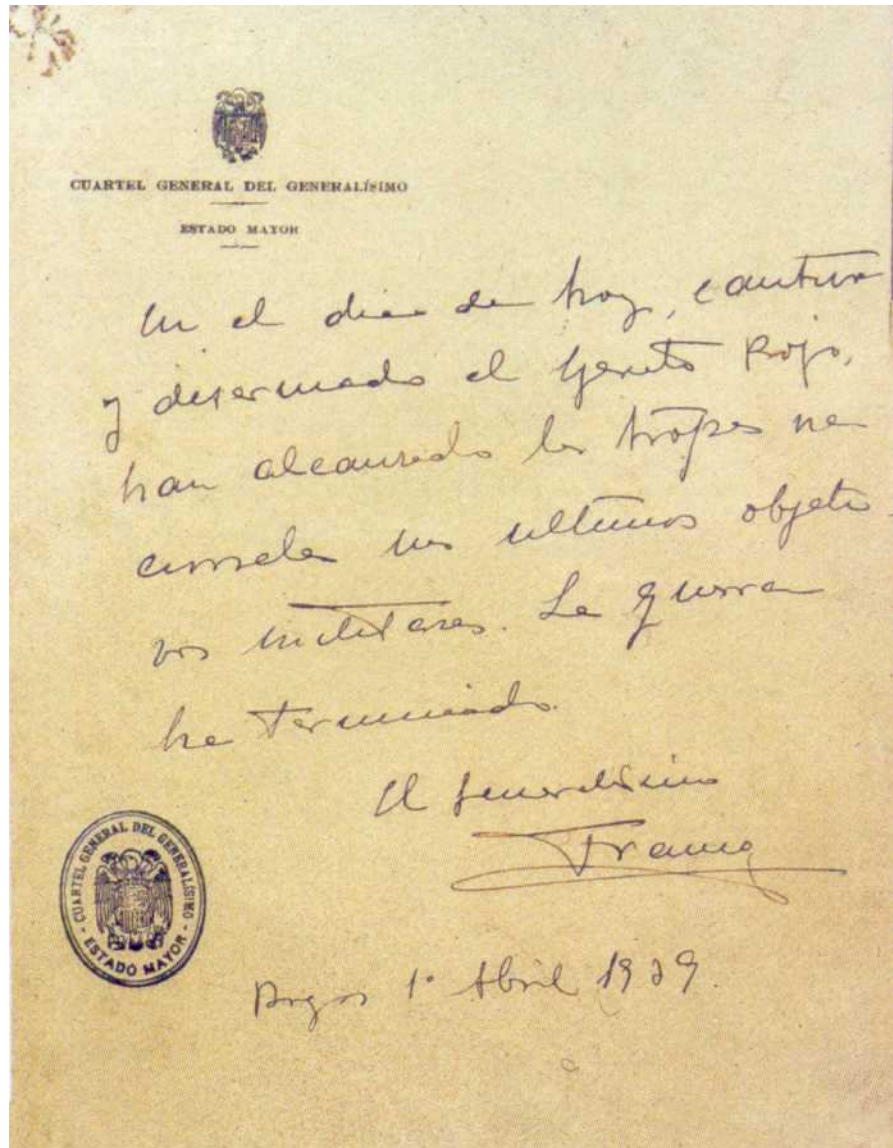 CUARTEL GENERAL DEL GENERALÍSIMO
ESTADO MAYOR
En el dia de hoy, cautivo
y desarmado el Ejercito Rojo,
han alcanzado las tropas na
cionales sus ultimos objeti
vos militares. La guerra
ha terminado.
El Generalísimo
Franco
CUARTEL GENERAL DEL GENERALÍSIMO
- ESTADO MAYOR -
Burgos 1º Abril 1939.